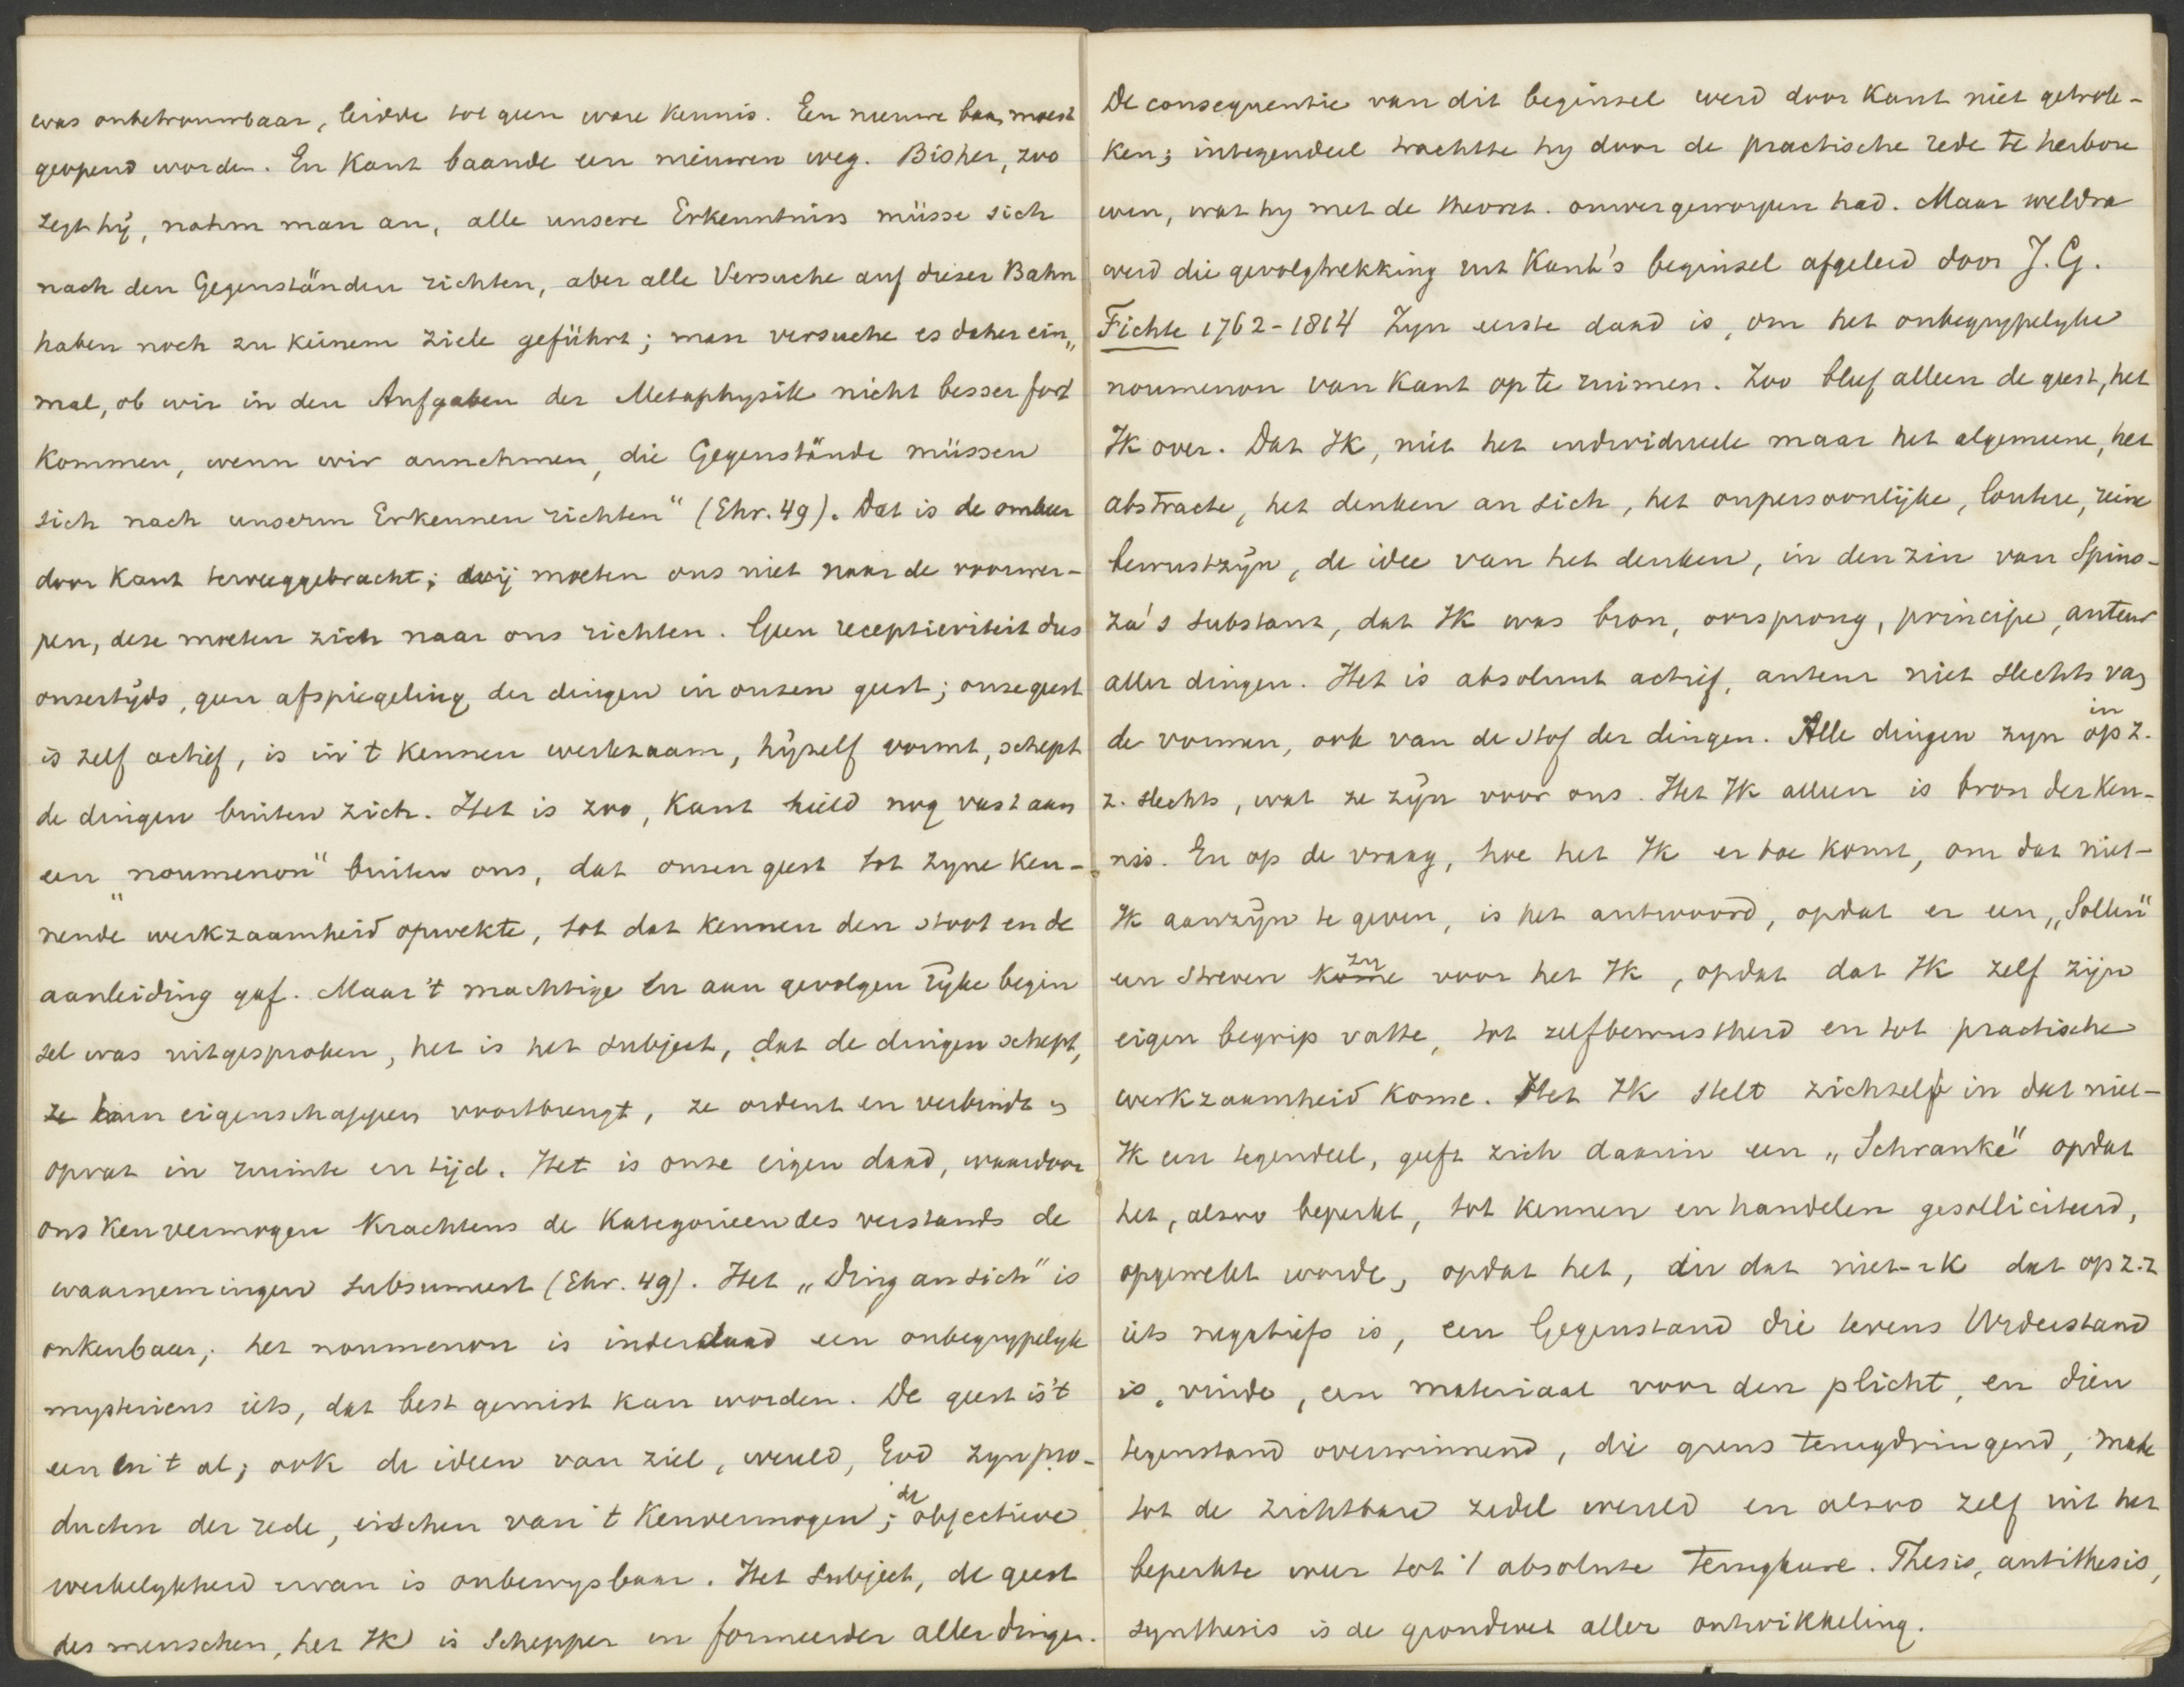 was onbetrouwbaar, leidde tot geen ware kennis. Een nieuwe baan moest
geopend worden. En Kant baande een nieuwen weg. Bisher, zoo
zegt hij, nahm man an, alle unsere Erkenntniss müsse sich
nach den Gegenständen richten, aber alle Versuche auf dieser Bahn
haben noch zu keinem Ziele geführt; man versuche es daher ein„
mal, ob wir in den Aufgaben der Metaphysik nicht besser fort
kommen, wenn wir annehmen, die Gegenstände müssen
sich nach unserm Erkennen richten“ (Ehr. 49). Dat is de omkeer
door Kant teweeggebracht; wij moeten ons niet naar de voorwer-
pen, deze moeten zich naar ons richten. Geen receptieviteit dus
onzertijds, geen afspiegeling der dingen in onzen geest; onze geest
is zelf actief, is in 't kennen werkzaam, hijzelf vormt, schept
de dingen buiten zich. Het is zoo, Kant hield nog vast aan
een „noumenon“ buiten ons, dat onzen geest tot zyne ken-
nende werkzaamheid opwekte, tot dat kennen den stoot en de
aanleiding gaf. Maar 't machtige en aan gevolgen rijke begin
sel was uitgesproken, het is het subject, dat de dingen schept,
ze hun eigenschappen voortbrengt, ze ordent en verbindt en
opvat in ruimte en tijd. Het is onze eigen daad, waardoor
ons Kenvermogen Krachtens de Kategorieen des verstands de
waarnemingen subsumeert (Ehr. 49). Het „Ding an sich“ is
onkenbaar; het noumenon is inderdaad een onbegrypelyk
mysterieus iets, dat best gemist kan worden. De geest is 't
een en 't al; ook de ideen van ziel, wereld, God zyn pro-
ducten der rede, eischen van 't Kenvermogen; de objectieve
werkelykheid ervan is onbewysbaar. Het subject, de geest
des menschen, het Ik is Schepper en formeerder aller dingen.
De consequentie van dit beginsel werd door Kant niet getrok-
ken; integendeel trachtte hy door de practische rede te herbou
wen, wat hy met de theoret. omvergeworpen had. Maar weldra
werd die gevolgtrekking uit Kant's beginsel afgeleid door J. G.
Fichte 1762-1814 Zyn eerste daad is, om het onbegrypelyke
noumenon van Kant op te ruimen. Zoo bleef alleen de geest, het
Ik over. Dat Ik, niet het individueele maar het algemeene, het
abstracte, het denken an sich, het onpersoonlijke, loutere, reine
bewustzijn, de idee van het denken, in den zin van Spino-
za's substant, dat Ik was bron, oorsprong, principe, auteur
aller dingen. Het is absoluut actief, auteur niet slechts van
de vormen, ook van de stof der dingen. Alle dingen zyn in op z.
z. slechts, wat ze zijn voor ons. Het Ik alleen is bron der ken-
nis. En op de vraag, hoe het Ik er toe komt, om dat niet-
Ik aanzijn te geven, is het antwoord, opdat er een „Sollen“
een streven kome zij voor het Ik, opdat dat Ik zelf zijn
eigen begrip vatte, tot zelfbewustheid en tot practische
werkzaamheid kome. Het Ik stelt zichzelf in dat niet-
Ik een tegendeel, geeft zich daarin een „Schranke“ opdat
het, alzoo beperkt, tot kennen en handelen gesolliciteerd,
opgewekt worde, opdat het, in dat niet-ik dat op z.z
iets negatiefs is, een Gegenstand die tevens Widerstand
is, vinde, een materiaal voor den plicht, en dien
tegenstand overwinnend, die grens terugdringend, make
tot de zichtbare zedel wereld en alzoo zelf uit het
beperkte weer tot 't absolute terugkeere. Thesis, antithesis,
synthesis is de grondwet aller ontwikkeling.